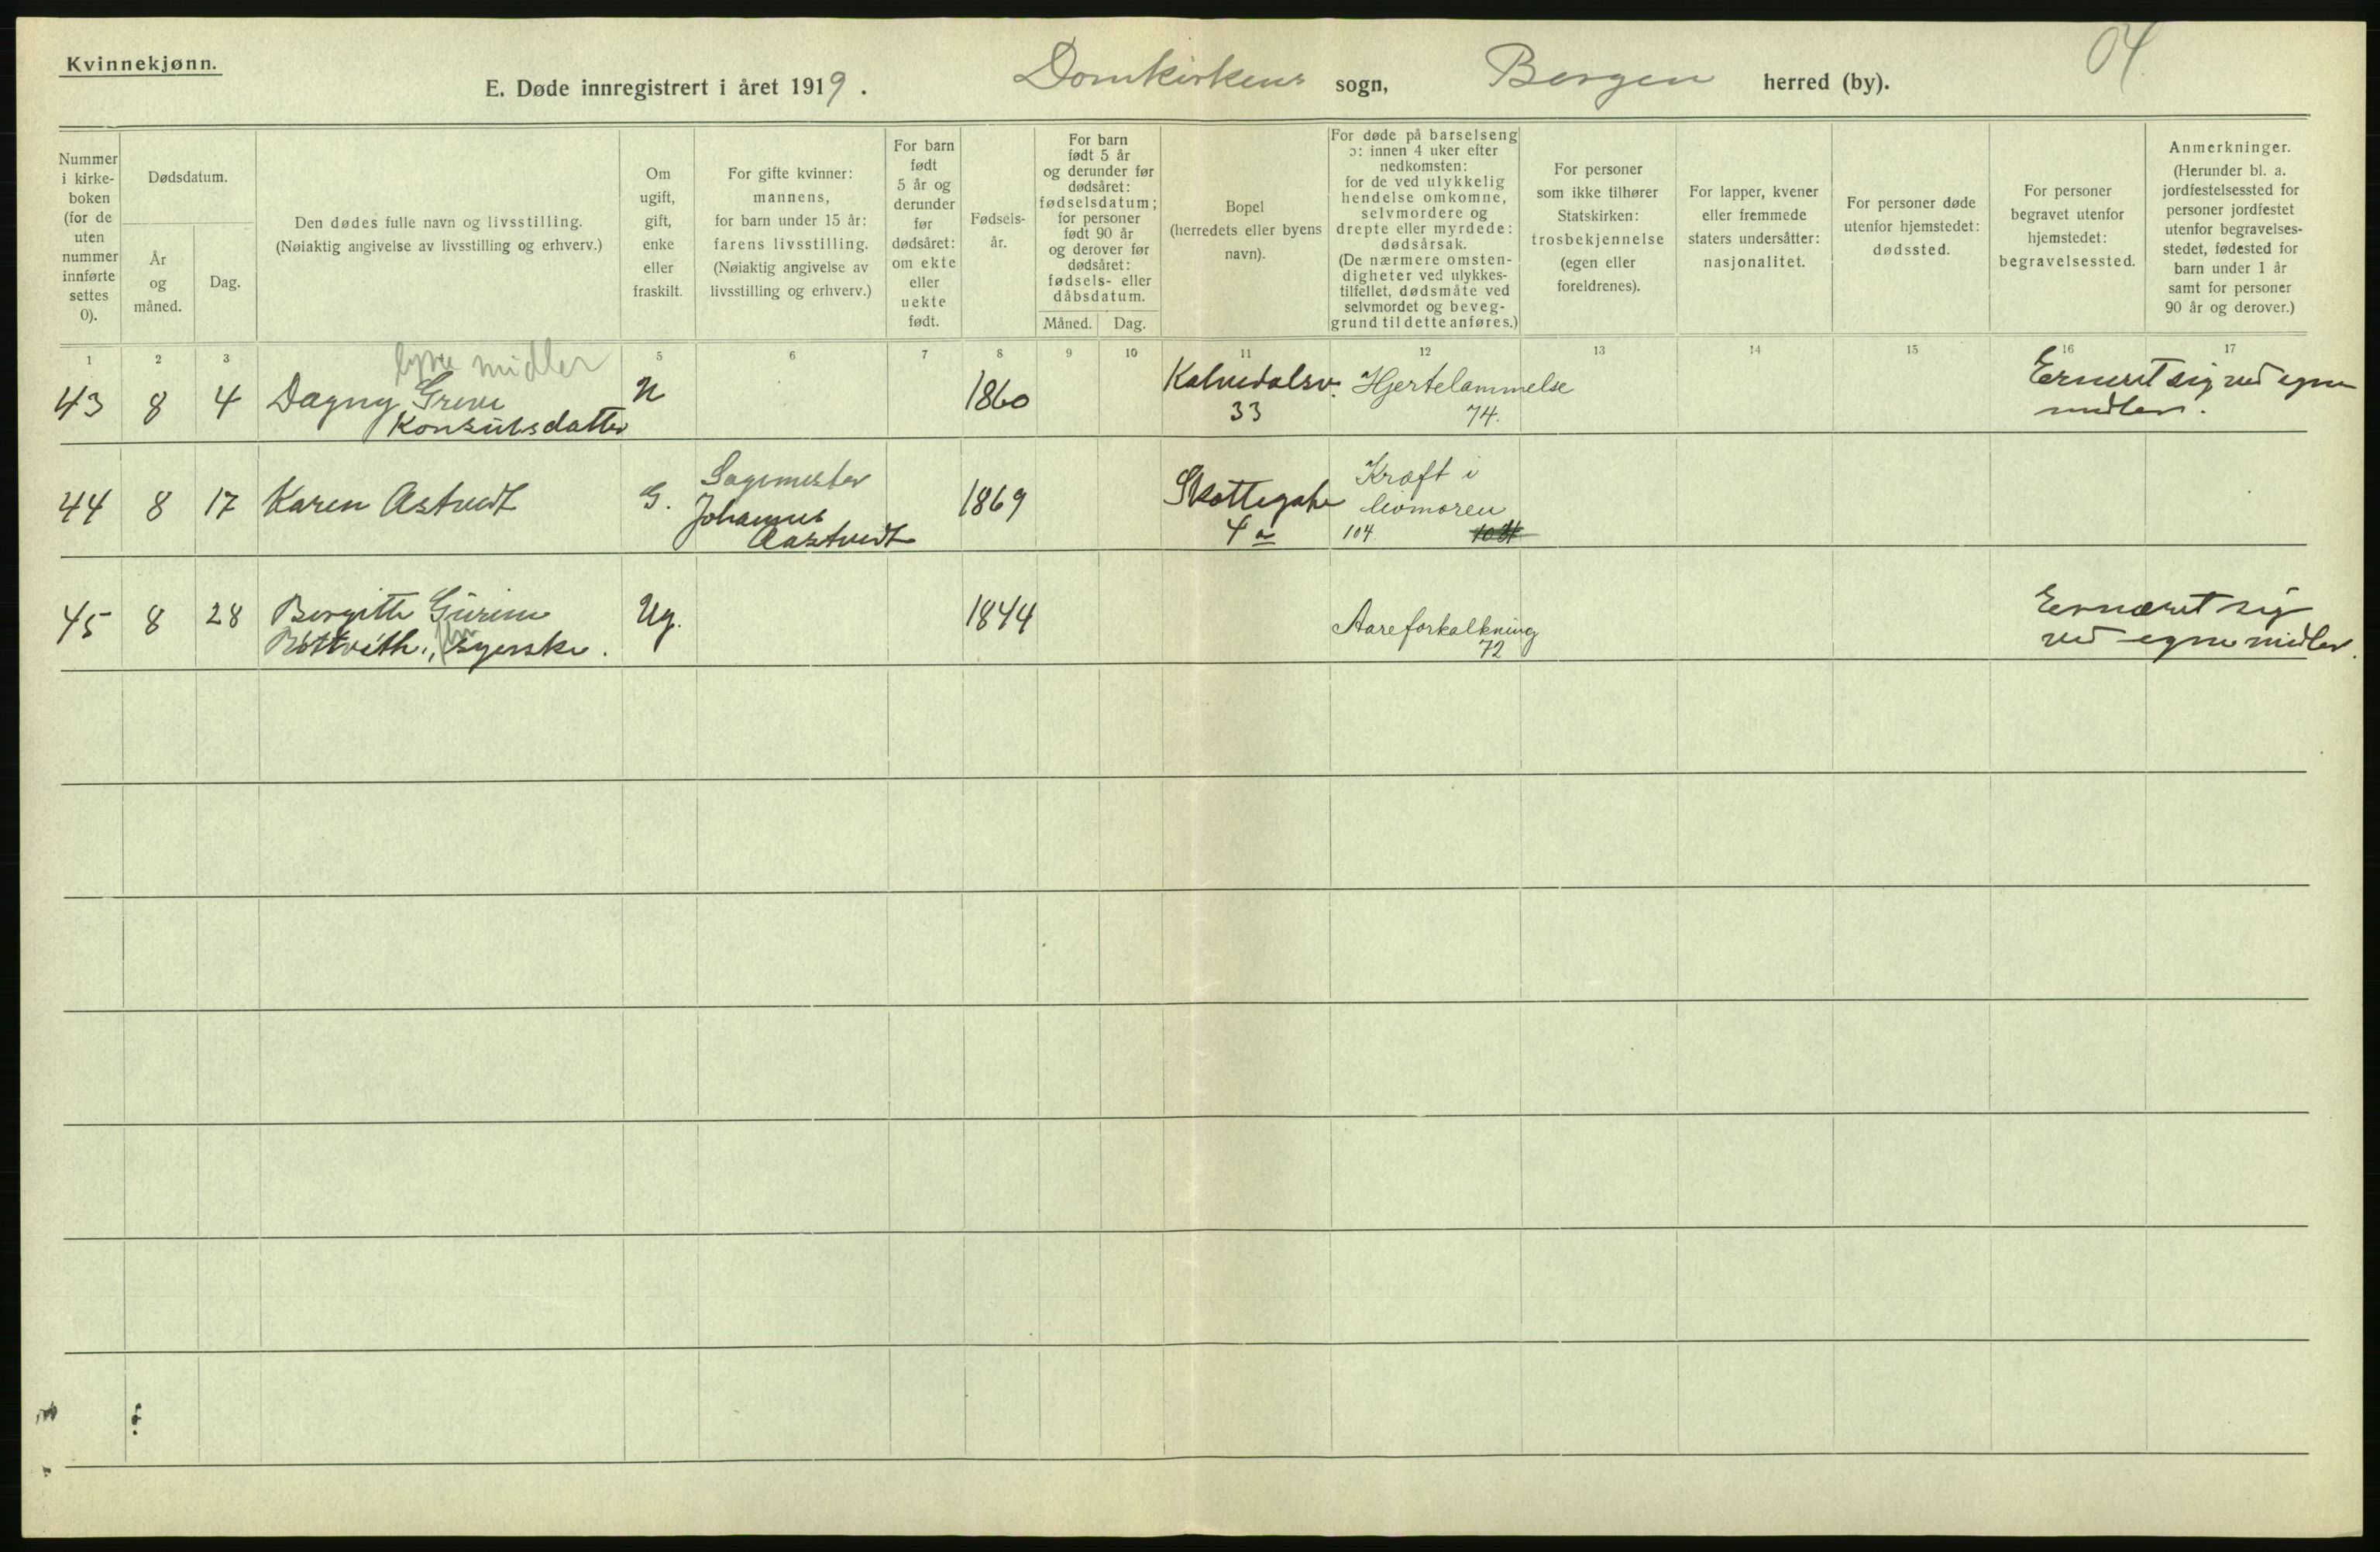 Kvinnekjønn.
E. Døde innregistrert i året 1919. Domkirkens sogn, Bergen herred (by).
04
Nummer
i kirke-
boken
(for de
uten
nummer
innførte
settes
0).
Dødsdatum.
År
og
måned.
Dag.
Den dødes fulle navn og livsstilling.
(Nøiaktig angivelse av livsstilling og erhverv.)
Om
ugift,
gift,
enke
eller
fraskilt.
For gifte kvinner:
mannens,
for barn under 15 år:
farens livsstilling.
(Nøiaktig angivelse av
livsstilling og erhverv.)
For barn
født
5 år og
derunder
før
dødsåret:
om ekte
eller
uekte
født.
Fødsels-
år.
For barn
født 5 år
og derunder før
dødsåret:
fødselsdatum;
for personer
født 90 år
og derover før
dødsåret:
fødsels- eller
dåbsdatum.
Måned. Dag.
Bopel
(herredets eller byens
navn).
For døde på barselseng
ɔ: innen 4 uker efter
nedkomsten:
for de ved ulykkelig
hendelse omkomne,
selvmordere og
drepte eller myrdede:
dødsårsak.
(De nærmere omsten-
digheter ved ulykkes-
tilfellet, dødsmåte ved
selvmordet og beveg-
grund til dette anføres.)
For personer
som ikke tilhører
Statskirken:
trosbekjennelse
(egen eller
foreldrenes).
For lapper, kvener
eller fremmede
staters undersåtter:
nasjonalitet.
For personer døde
utenfor hjemstedet:
dødssted.
For personer
begravet utenfor
hjemstedet:
begravelsessted.
Anmerkninger.
(Herunder bl. a.
jordfestelsessted for
personer jordfestet
utenfor begravelses-
stedet, fødested for
barn under 1 år
samt for personer
90 år og derover.)
1 2 3 5 6 7 8 9 10 11 12 13 14 15 16 17
midler
43 8 4 Dagny Greve U 1860 Kalvedalsv. Hjertelammelse Erneret sig ved egne
Konsulsdatter 33 74. midler.
Sagemester Kræft i
44 8 17 Karen Astvedt G. Johannes 1869 Skottegate livmoren
Aastvedt 4a 104
45 8 28 Bergitte Gurine Ug. 1844 Aareforkalkning Ernæret sig
syerske. 72 ved egne midler.